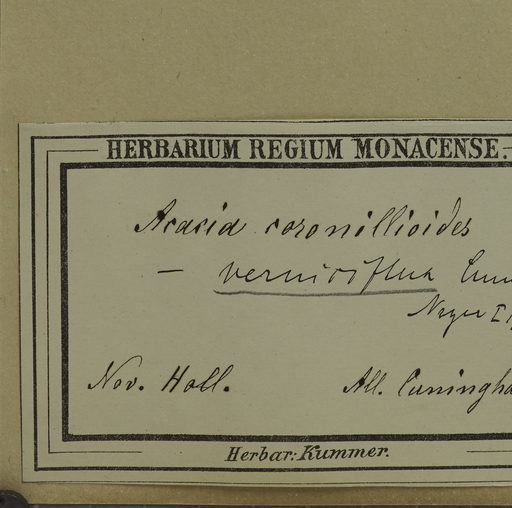 HERBARIUM REGIUM MONACENSE.
Acacia coronillioides
— verniciflua Cunn
Nov. Holl. All. Cuningha
Herbar: Kummer.